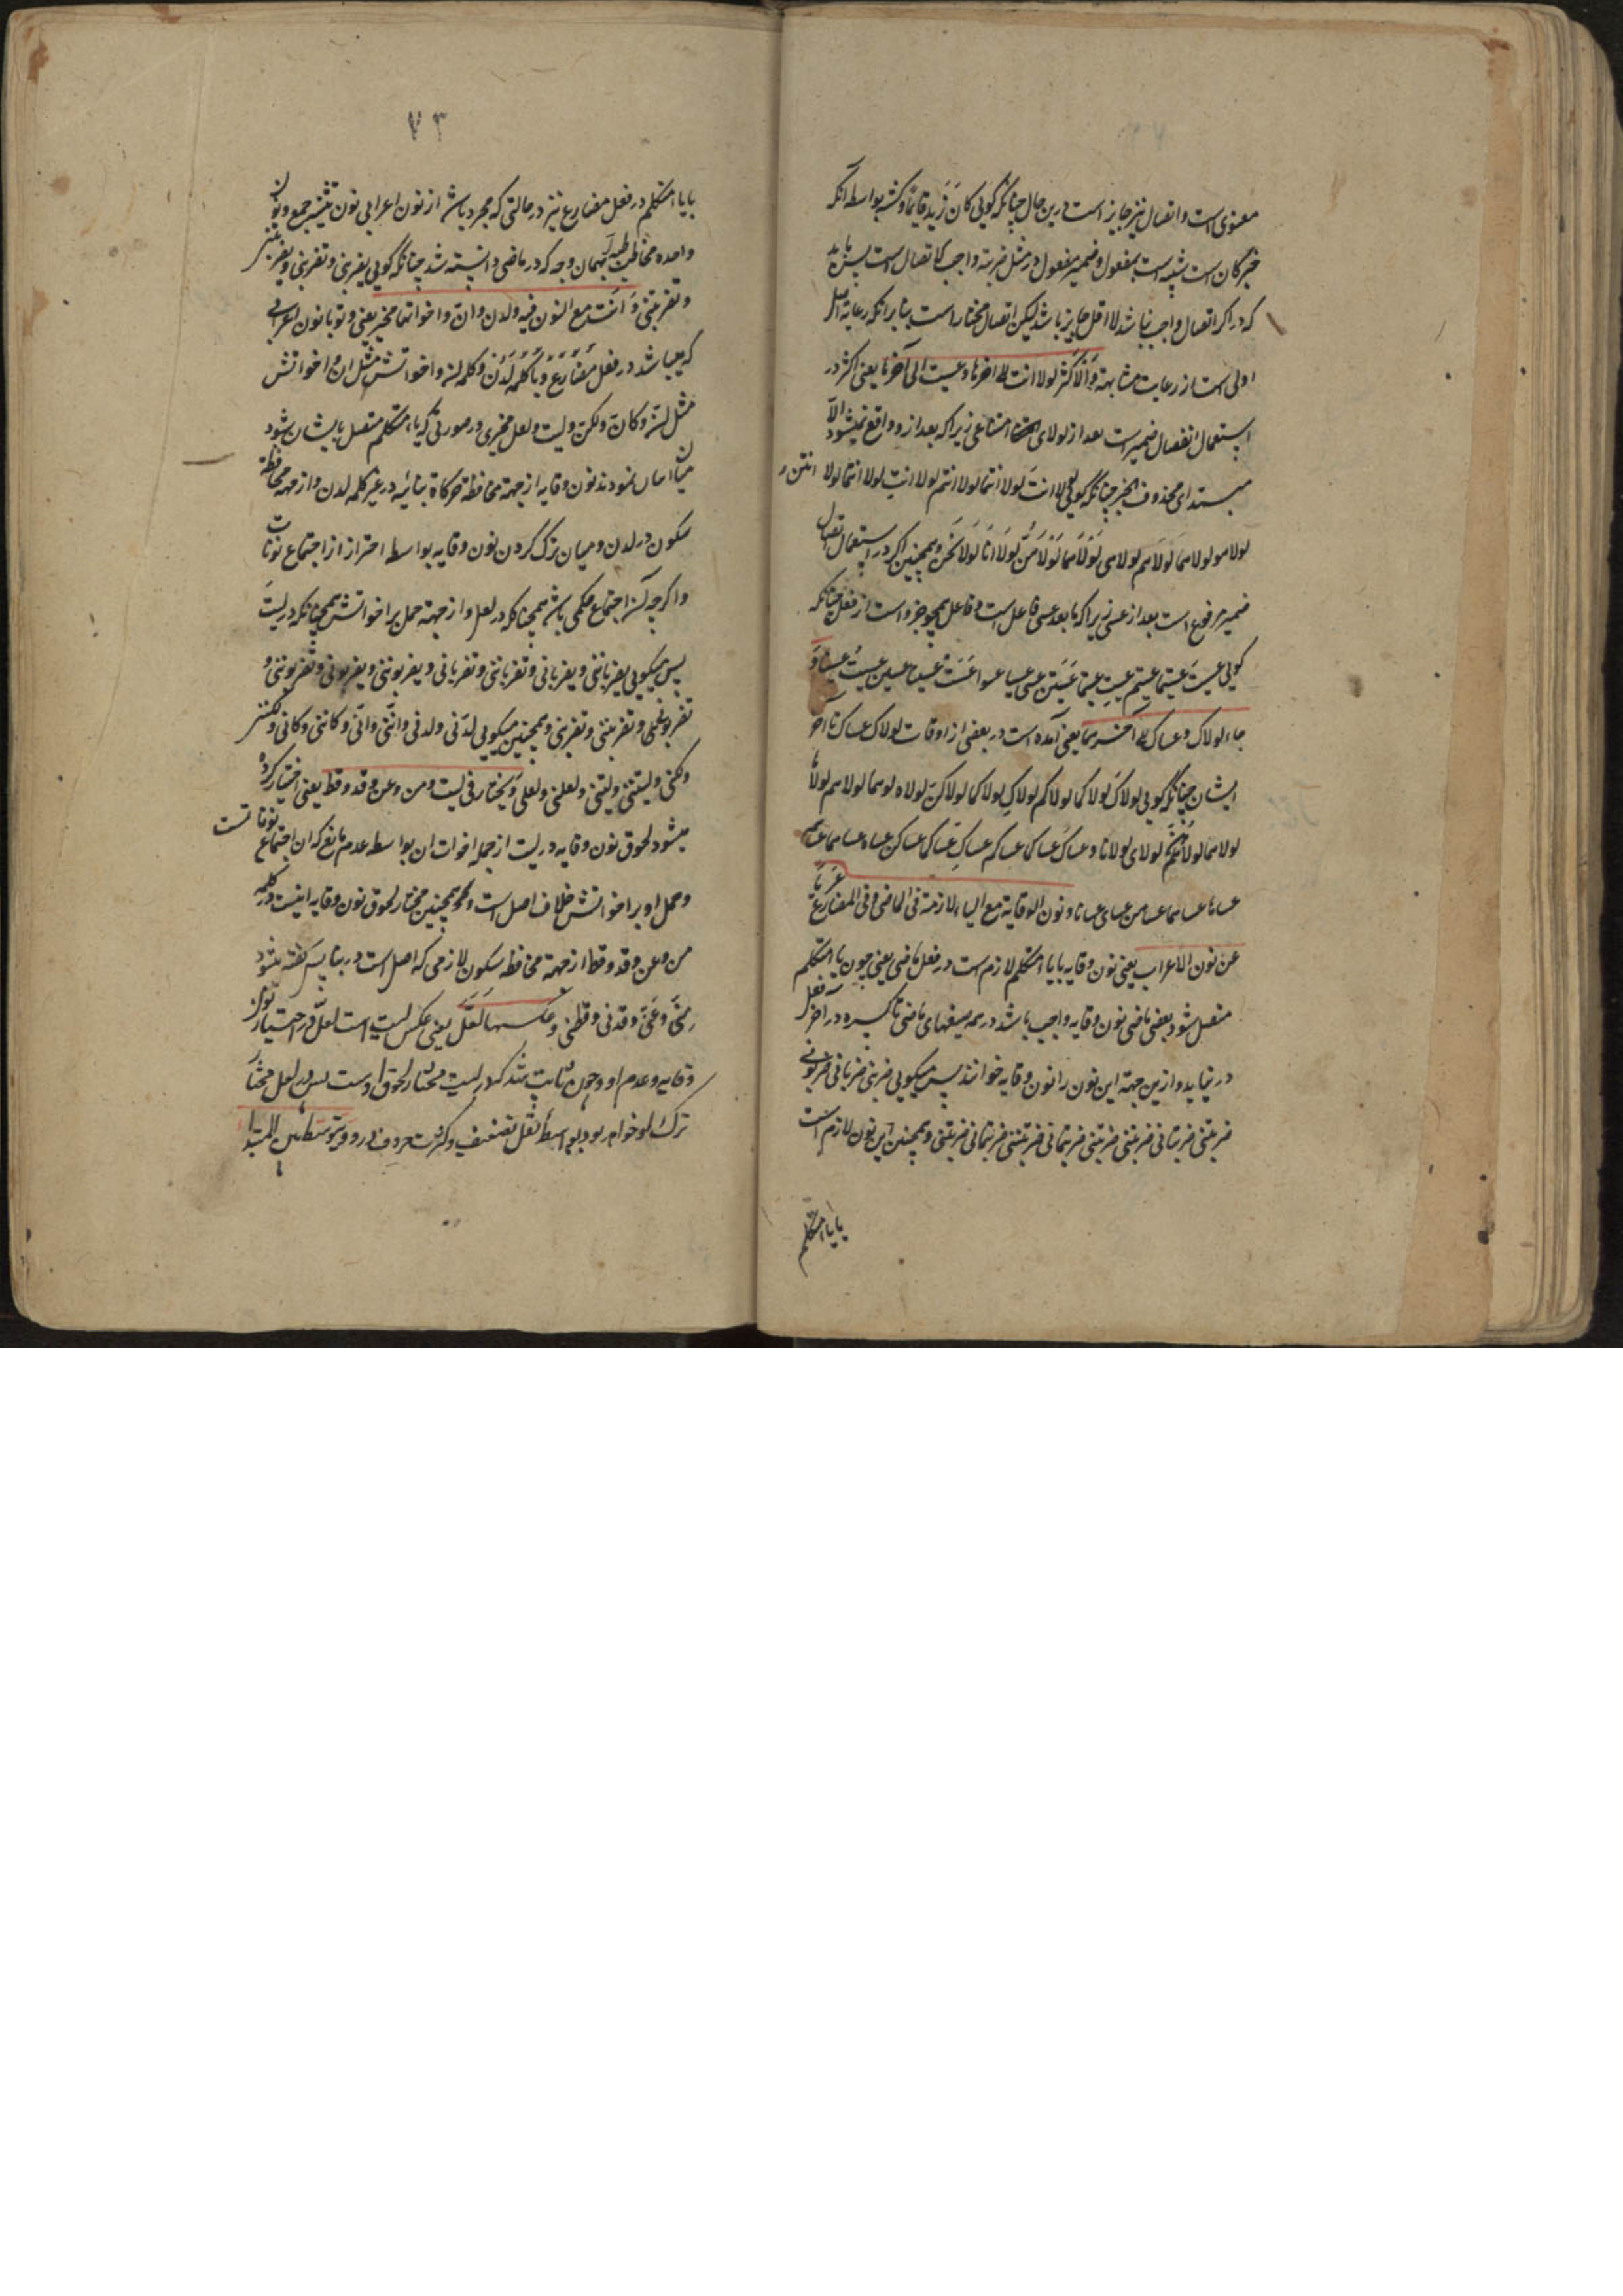 معنوی است و اتصال نیز جایز است درین حال چنانکه گویی کان زید قایما و کنته بواسطه آنکه
خبر کان است شبیه است بمفعول و ضمیر مفعول در مثل ضربته واجب الاتصال است پس باید
که در اگر اتصال واجب نباشد لا اقل جایز باشد لیکن اتصال مختار است بنابر آنکه رعایة اصل
اولی است از رعایت مشابهة وَالاَکثر لولا انت الی اخرها و عسیت الی آخرها یعنی اکثر در
استعمال انفصال ضمیر است بعد از لولای امتناعی زیرا که بعد از و واقع نمیشود الّا
مبتدای محذوف الخبر چنانکه گویی لولا انتَ لولا انتما لولا انتم لولا انتِ لولا انتما لولا انتن و
لولا هو لولا هما لولا هم لولا هی لولا هما لولا هنّ لولا انا لولا نحن و همچنین اکثر در استعمال اتصال
ضمیر مرفوع است بعد از عسی زیرا که ما بعد عسی فاعل است و فاعل همچو جزو است از فعل چنانکه
گویی عسیتَ عسیتما عسیتم عسیتِ عسیتما عسیتن عسی عسیا عسوا عست عسیتا عسین عسیتُ عسینا وَ
جاء لولاک و عساک الی آخرهما یعنی آمده است در بعضی از اوقات لولاک عساک تا آخر
ایشان چنانکه گویی لولاکَ لولاکما لولاکم لولاکِ لولاکما لولاکنّ لولاه لولاهما لولاهم لولاها
لولاهما لولاهنّ لولای لولانا و عساکَ عساکما عساکم عساکِ عساکما عساکن عساه عساهما عساهم
عساها عساهما عساهن عسای عسانا و نون الوقایة مع الیاء لازمة فی الماضی و فی المضارع عریّاً
عن نون الاعراب یعنی نون وقایه بایاء متکلم لازم است در فعل ماضی یعنی چون یاء متکلم
متصل شود بفعل ماضی نون وقایه واجب باشد در همه صیغهای ماضی تا کسره در آخر فعل
در نیاید و ازین جهة این نون را نون وقایه خوانند پس میگویی ضربنی ضربانی ضربونی
ضربتنی ضربتانی ضربننی ضربتنی ضربتمانی ضربتمونی ضربتنی ضربتمانی ضربتننی و همچنین این نون لازم است
بایاء متکلم
۷۳
بایاء متکلم در فعل مضارع نیز در حالتی که مجرد باشد از نون اعرابی نون تثنیه و جمع و نون
واحده مخاطبه بهمان وجه که در ماضی دانسته شد چنانکه گویی یضربنی و تضربنی و یضربننی
و تضربننی وَ انت مع النون فیه و لدن و انّ و اخواتها مخیر یعنی و تو با نون اعرابی
که میباشد در فعل مضارع و با کلمه لدن و کلمه انّ و اخواتش مثل انّ و اخواتش
مثل انّ و کانّ و لکنّ و لیت و لعل مخیری در صورتی که یاء متکلم متصل بایشان شود
میان اتیان نمودن نون وقایه از جهة محافظة حرکاة بنائیه در غیر کلمه لدن و از جهة محافظة
سکون در لدن و میان ترک کردن نون وقایه بواسطه احتراز از اجتماع نونات
و اگرچه آن اجتماع حکمی باشد همچنانکه در لعل و از جهة حمل بر اخواتش همچنانکه در لیتَ
پس میگویی یضرباننی و یضربانی و تضرباننی و تضربانی و یضربوننی و یضربونی و تضربوننی و
تضربونی و تضربیننی و تضربینی و همچنین میگویی لدنّی و لدنی و انّنی و انّی و کاننی و کانی و لکننی
و لکنی و لیتنی و لیتی و لعلنی و لعلی وَ یختار فی لیت و من و عن و قد و قط یعنی اختیار کرده
میشود لحوق نون وقایه در لیت از جمله اخوات ان بواسطه عدم مانع که ان اجتماع نونات است
و حمل او بر اخواتش خلاف اصل است و همچنین مختار لحوق نون وقایه است در کلمه
من و عن و قد و قط از جهة محافظه سکون لازمی که اصل است در بنا پس گفته میشود
منّی وَ عنّی و قدنی و قطنی و عکسها لعلّ یعنی عکس لیت است لعلّ در اختیار نون
وقایه و عدم او و چون ثابت شد که در لیت مختار لحوق اوست پس در لعل مختار
ترک او خواهد بود بواسطهٔ ثقل تضعیف و کثرت حروف در و و یتوسط بین المبتدا